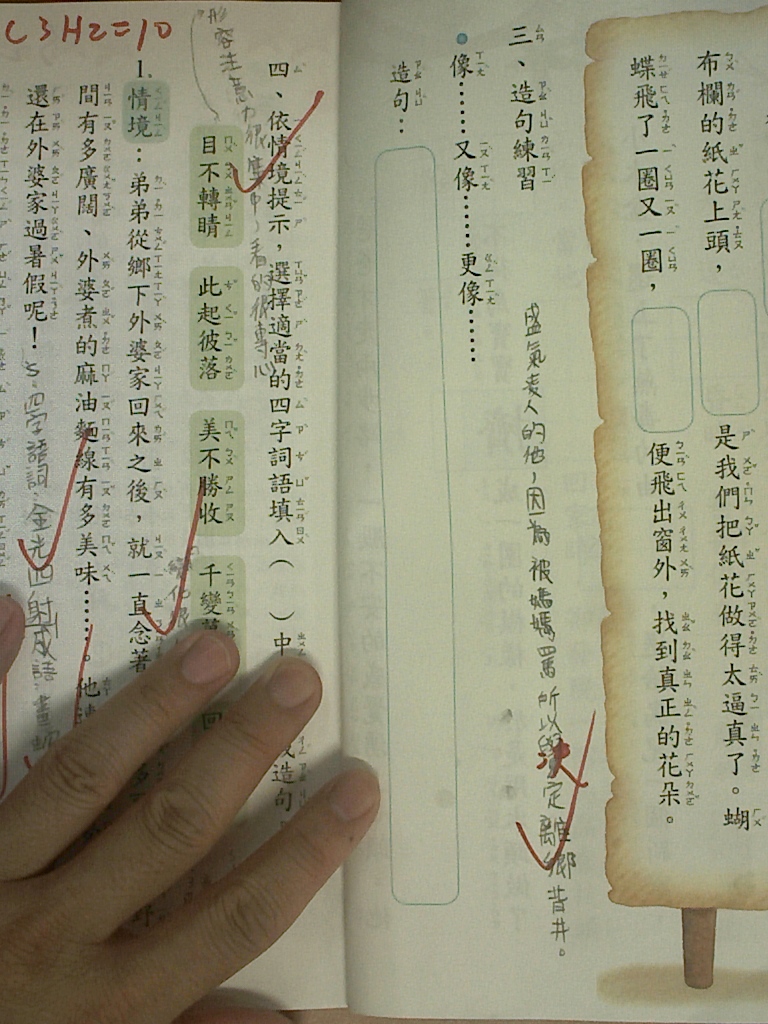 布欄的紙花上頭，
是我們把紙花做得太逼真了。蝴
蝶飛了一圈又一圈，
便飛出窗外，找到真正的花朵。
盛氣凌人的他，因為被媽媽罵所以決定離鄉背井。
三、造句練習
像……又像……更像……
造句：
四、依情境提示，選擇適當的四字詞語填入（ ）中
造句
目不轉睛
此起彼落
美不勝收
千變萬
回
形容注意力很集中，看的很專心
1.
情境：弟弟從鄉下外婆家回來之後，就一直念著
間有多廣闊、外婆煮的麻油麵線有多美味……。他
還在外婆家過暑假呢！
四字語詞：金光四射 成語：畫
C3H2=10